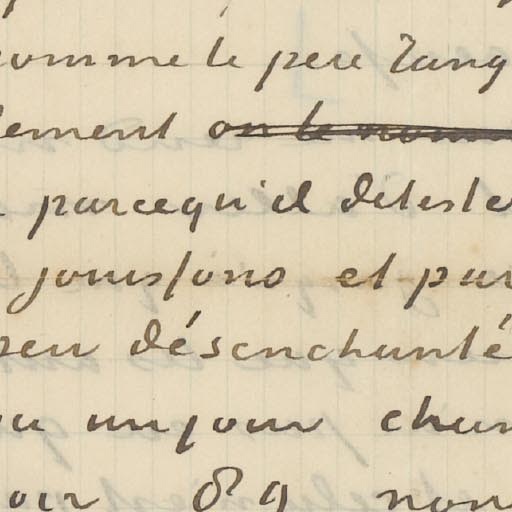 omme le pere Tang
lement on le nomm
parcequ'il deteste
jouissons et par
peu désenchanté
un jour chan
oir 89 non